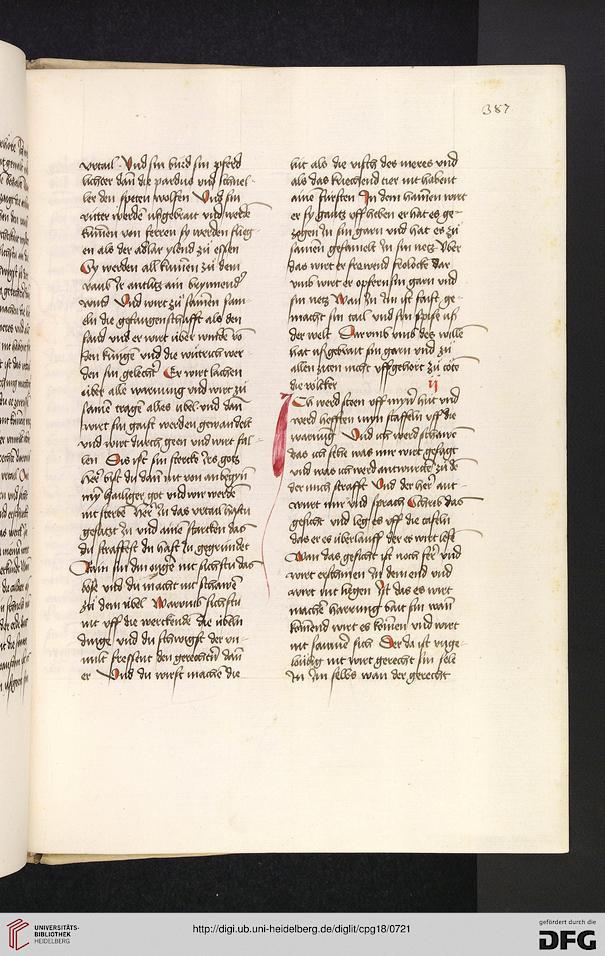 387
vrtail Vnd sin burd sin pferd
liechter dan die parduo vnd schnel-
ler den speten wolfen Vnd sin
ritter werden vßgebrait vnd werde
kumen von ferren sy werden flieg
en als der adlar ylend zu essen
Sy werden all kumen zu dem
raub ir antlitz ain brynnend
wind Vnd wirt zu samen sam
eln die gefangenschafft als den
sand vnd er wirt über winde vo
den kungen vnd die wüterich wer
den sin gelecht Er wirt lachen
über alle warnung vnd wirt zu
same trage alles übel vnd dan
wirt sin gaist werden gewandelt
vnd wirt durch geen vnd wirt fal-
len Dis ist sin stercke ires gotz
her bist du dan nit von anbegyn
my hailiger got vnd wir werde
nit sterbe her zu das vrtail hastu
gesatzt in vnd aine starcken das
du straffest du hast in gegründet
Rain sin din ougen nit sichstu das
böse vnd du macht nit schawen
zu dem übel Warumb sichstu
nit vff die werckende die übeln
dinge vnd du schwigst der vn-
milt fressent den gerechten dan
er Vnd du wirst machen die
lüt als die visch des meres vnd
als das kriechend tier nit habent
aine fürsten In dem hamen wirt
er sy gantz vff heben er hat es ge-
zogen in sin garn vnd hat es zu
samen gesamelt in sin netz Über
das wirt er frowend frolocke Dar
vmb wirt er opfern sin garn vnd
sin netz Wan in in ist faist ge-
macht sin tail vnd sin spise vß
der welt Darumb vmb des wille
hat vßgebrait sin garn vnd zu
allen zyten nicht vffgehört zu töte
die völcker ij
Ich werd steen vff myner hüt vnd
werd hefften myn staffeln vff die
warnung Vnd ich werd schawe
das ich sehe was mir wert gesagt
vnd was ich werd antwurte zu de
der mich strafft Vnd der her ant-
wirt mir vnd sprach Schrib das
gesicht vnd leg es vff die tafeln
das er es überlauff der es wirt lesen
Wan das gesicht ist noch fer vnd
wirt erschinen in dem end vnd
wirt nit liegen Ist das es wirt
machen harrung bait sin wan
komend wirt es komen vnd wirt
nit saumen sich Der da ist vnge-
löubig nit wirt gerecht sin sele
in im selbs wan der gerecht
UNIVERSITÄTS-
BIBLIOTHEK
HEIDELBERG
http://digi.ub.uni-heidelberg.de/diglit/cpg18/0721
gefördert durch die
DFG